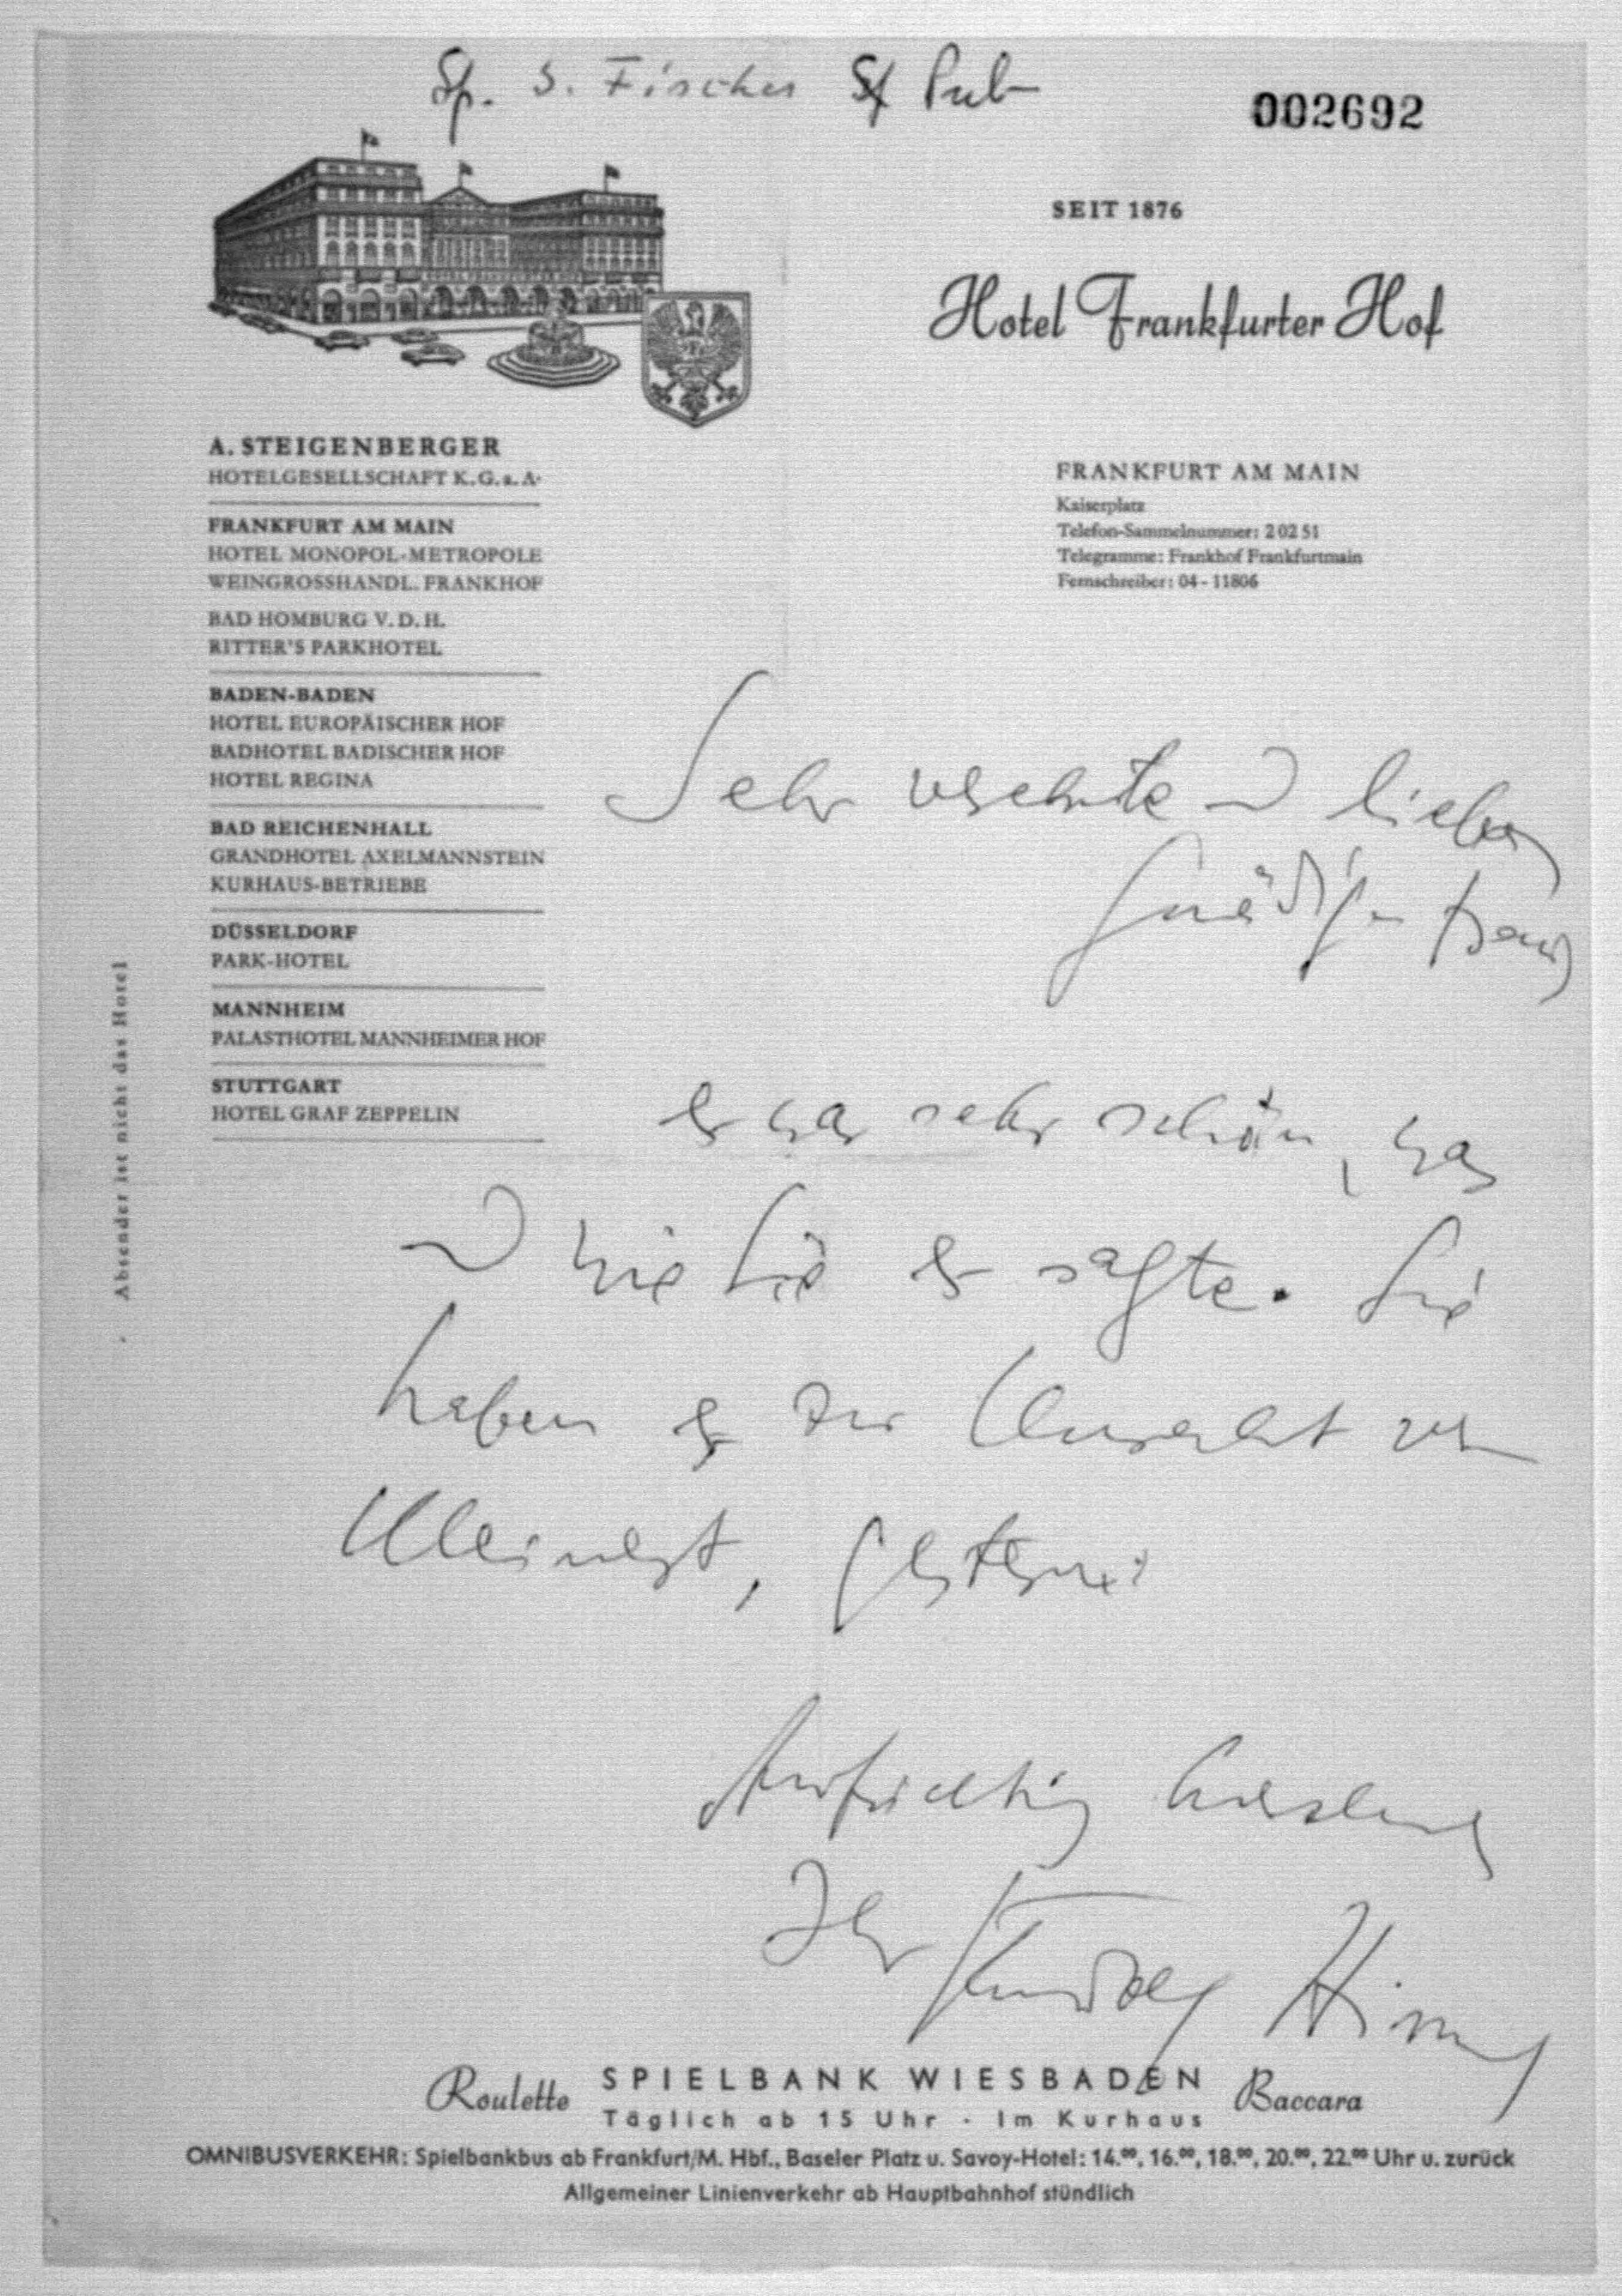 Sp. S. Fischer Sf Pub
002692
SEIT 1876
Hotel Frankfurter Hof
A. STEIGENBERGER
HOTELGESELLSCHAFT K.G.a.A.
FRANKFURT AM MAIN
HOTEL MONOPOL-METROPOLE
WEINGROSSHANDL. FRANKHOF
BAD HOMBURG V.D.H.
RITTER'S PARKHOTEL
BADEN-BADEN
HOTEL EUROPÄISCHER HOF
BADHOTEL BADISCHER HOF
HOTEL REGINA
BAD REICHENHALL
GRANDHOTEL AXELMANNSTEIN
KURHAUS-BETRIEBE
DÜSSELDORF
PARK-HOTEL
MANNHEIM
PALASTHOTEL MANNHEIMER HOF
STUTTGART
HOTEL GRAF ZEPPELIN
FRANKFURT AM MAIN
Kaiserplatz
Telefon-Sammelnummer: 20251
Telegramme: Frankhof Frankfurtmain
Fernschreiber: 04-11806
Absender ist nicht das Hotel
Sehr verehrte u lieber
gnädige Frau,
es war sehr schön, was
u wie Sie es sagte. Sie
haben es zur
, gestern!
Aufrichtig
Ihr Rudolf Hirsch
Roulette SPIELBANK WIESBADEN Baccara
Täglich ab 15 Uhr · Im Kurhaus
OMNIBUSVERKEHR: Spielbankbus ab Frankfurt/M. Hbf., Baseler Platz u. Savoy-Hotel: 14.00, 16.00, 18.00, 20.00, 22.00 Uhr u. zurück
Allgemeiner Linienverkehr ab Hauptbahnhof stündlich